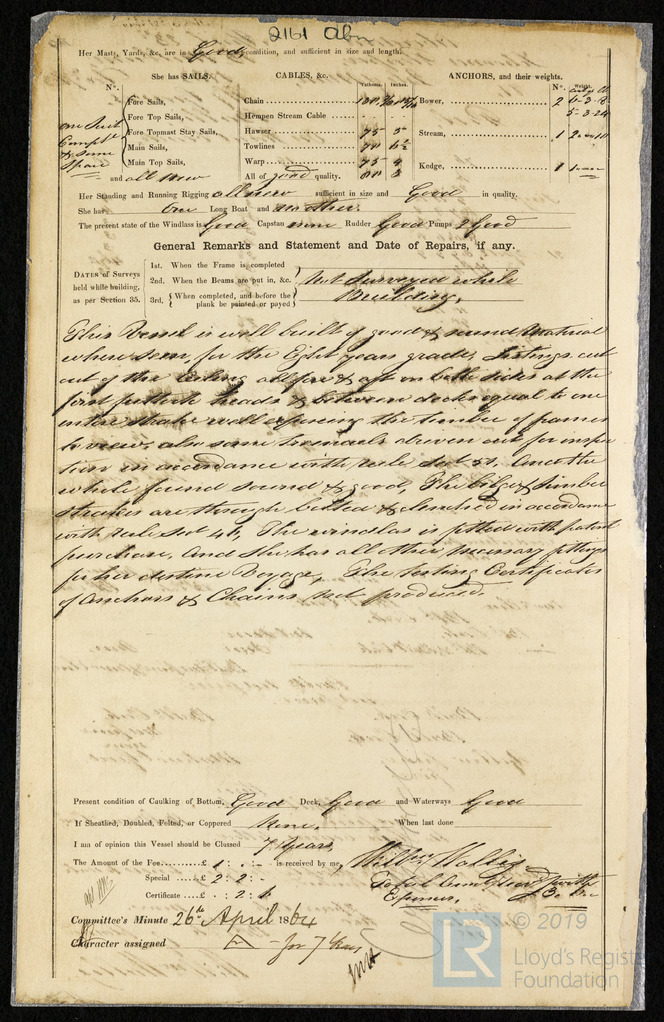 2161 Abn
Her Masts, Yards, &c. are in Good condition, and sufficient in size and length.
She has SAILS. CABLES, &c. Fathoms. Inches. ANCHORS, and their weights. Nº. Weight.
Nº.
Fore Sails, Chain Bower, 2
Fore Top Sails, Hempen Stream Cable 5-3-24
one Suit Fore Topmast Stay Sails, Hawser 75 5 Stream, 1
Complete Main Sails, Towlines
& some Spare Main Top Sails, Warp 75 4 Kedge, 1
and all new All of good quality.
Her Standing and Running Rigging all new sufficient in size and Good in quality.
She has One Long Boat and no other.
The present state of the Windlass is Good Capstan none Rudder Good Pumps 2 Good
General Remarks and Statement and Date of Repairs, if any.
DATES of Surveys held while building, as per Section 35.
1st. When the Frame is completed
2nd. When the Beams are put in, &c. Not Surveyed while
3rd. When completed, and before the plank be painted or payed Building.
This Vessel is well built of good & sound Material
where seen, for the Eight years grade, Listings cut
out of the Ceiling all fore & aft on both sides at the
first futtock heads & between decks equal to one
entire strake well exposing the timber of frames
to view, also some treenails driven out for inspec
tion in accordance with rule Sect 51, and the
whole found sound & good, The bilge & limber
strakes are through bolted & clenched in accordance
with rule Sect 46, The windlass is fitted with patent
purchase, and She has all other necessary fittings
for her destine Voyage, The testing Certificates
of Anchors & Chains not produced.
Present condition of Caulking of Bottom, Good Deck, Good and Waterways Good
If Sheathed, Doubled, Felted, or Coppered None. When last done
I am of opinion this Vessel should be Classed 7 Years
The Amount of the Fee......£ 1 : . : - is received by me,
Special ......£ 2 : 2 : -
Certificate ...£ . : 2 : 6 Expenses,
Committee's Minute 26th April 1864
Character assigned A - for 7 Years
© 2019
LR
Lloyd's Register
Foundation